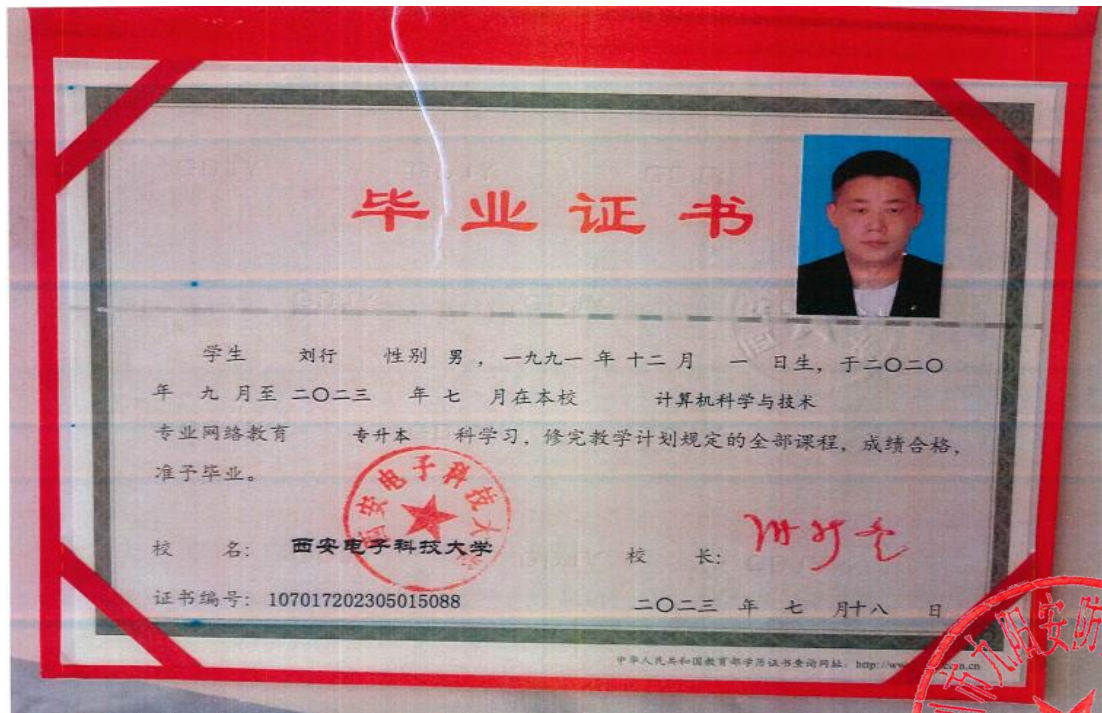 毕业证书
学生 刘行 性别 男，一九九一 年 十二 月 一 日生，于二〇二〇
年 九 月至 二〇二三 年 七 月在本校 计算机科学与技术
专业网络教育 专升本 科学习，修完教学计划规定的全部课程，成绩合格，
准予毕业。
西安电子科技大学
校 名： 西安电子科技大学 校 长：
证书编号：107017202305015088 二〇二三 年 七 月十八 日
中华人民共和国教育部学历证书查询网址：http://ww
九阳安防